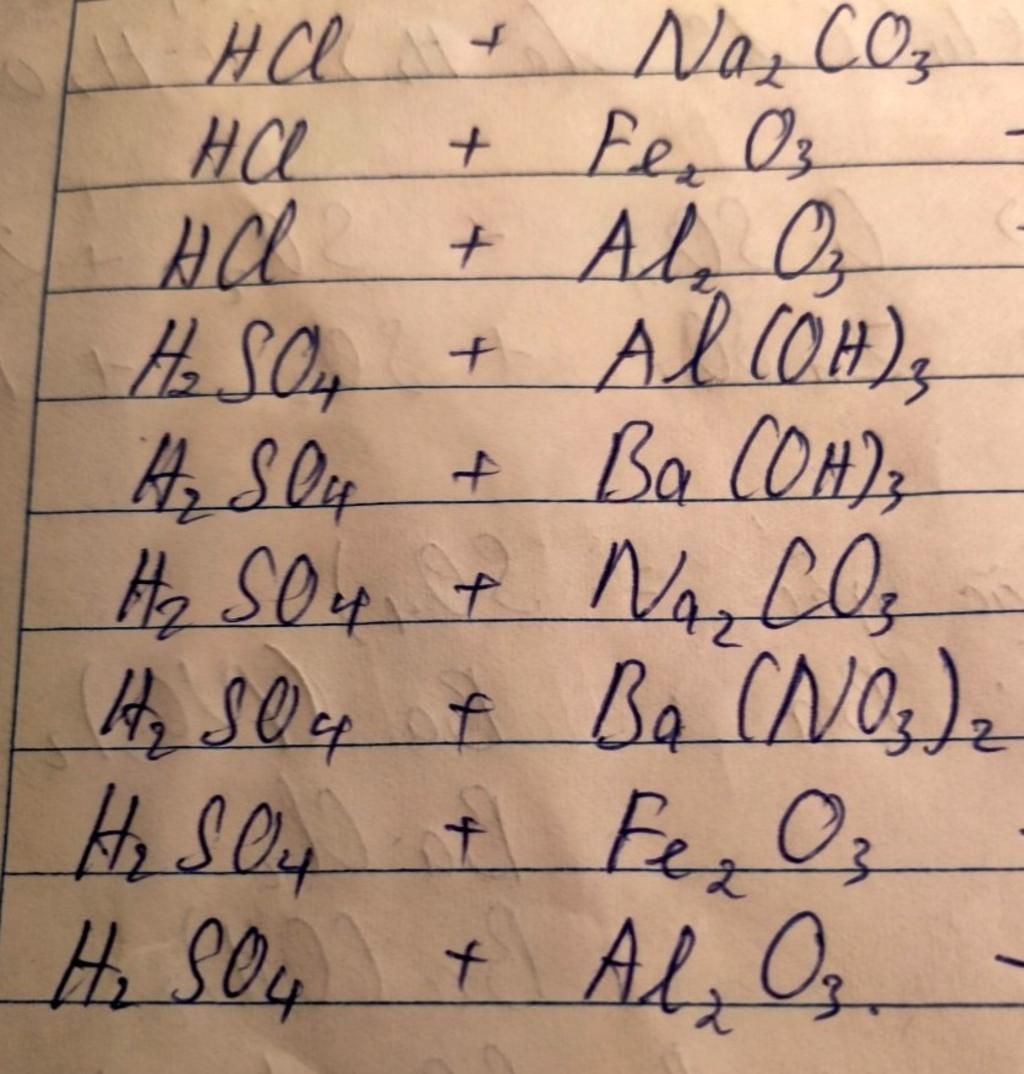 HCl + Na₂CO₃
HCl + Fe₂O₃ -
HCl + Al₂O₃ -
H₂SO₄ + Al(OH)₃
H₂SO₄ + Ba(OH)₃
H₂SO₄ + Na₂CO₃
H₂SO₄ + Ba(NO₃)₂
H₂SO₄ + Fe₂O₃ -
H₂SO₄ + Al₂O₃. -